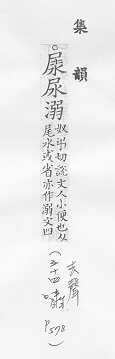 集韻
。尿溺
奴弔切說文人小便也从
尾水或省亦作溺文四
去聲
(三十四嘯 P578)